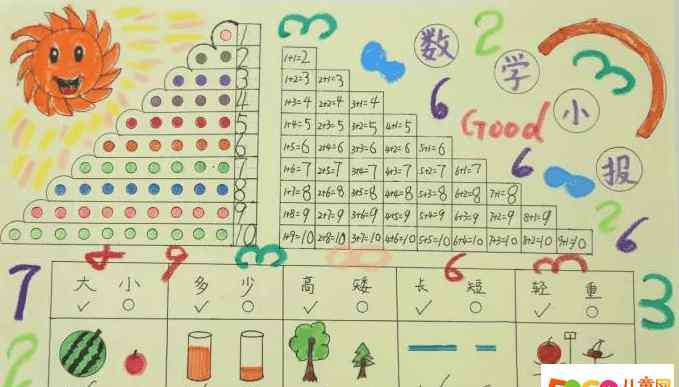 数学小报
Good
1
2
3
4
5
6
7
8
9
10
1+1=2
1+2=3 2+1=3
1+3=4 2+2=4 3+1=4
1+4=5 2+3=5 3+2=5 4+1=5
1+5=6 2+4=6 3+3=6 4+2=6 5+1=6
1+6=7 2+5=7 3+4=7 4+3=7 5+2=7 6+1=7
1+7=8 2+6=8 3+5=8 4+4=8 5+3=8 6+2=8 7+1=8
1+8=9 2+7=9 3+6=9 4+5=9 5+4=9 6+3=9 7+2=9 8+1=9
1+9=10 2+8=10 3+7=10 4+6=10 5+5=10 6+4=10 7+3=10 8+2=10 9+1=10
3
2
3
6
6
2
6
7
4 9 3 8 6 3
3
2
大 小 多 少 高 矮 长 短 轻 重
儿童网